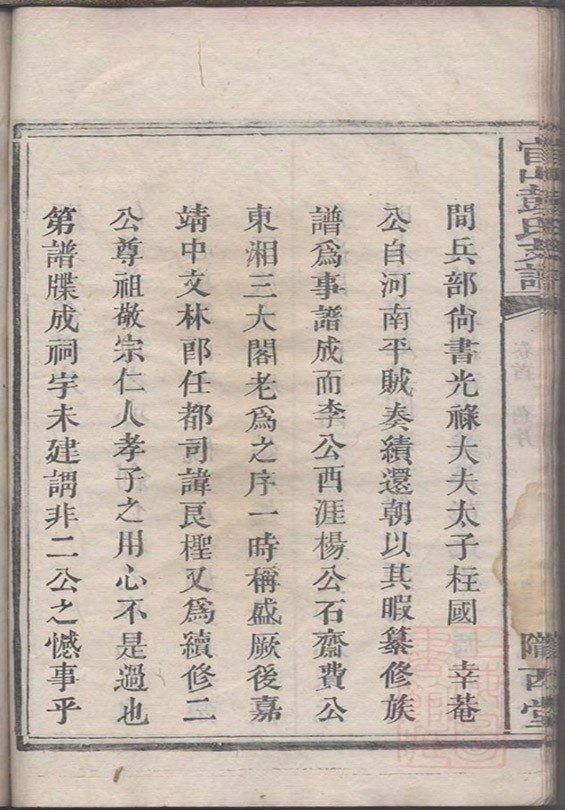 官山彭氏支譜
卷首 舊序
隴西堂
間兵部尚書光祿大夫太子柱國 幸菴
公自河南平賊奏績還朝以其暇纂修族
譜爲事譜成而李公西涯楊公石齋費公
東湘三大閣老爲之序一時稱盛厥後嘉
靖中文林郎任都司諱艮檉又爲續修二
公尊祖敬宗仁人孝子之用心不是過也
第譜牒成祠宇未建謂非二公之憾事乎